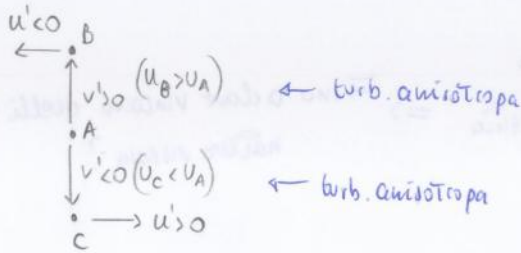 u'<0
B
v'>0 (U_B>U_A) ← turb. anisotropa
A
v'<0 (U_C<U_A) ← turb. anisotropa
→ u'>0
C